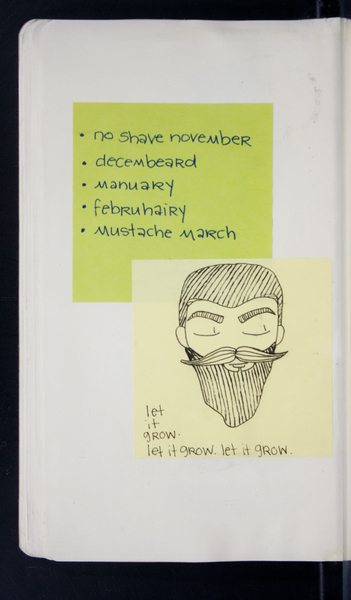 • no shave november
• decembeard
• manuary
• februhairy
• mustache march
let
it
grow.
let it grow. let it grow.